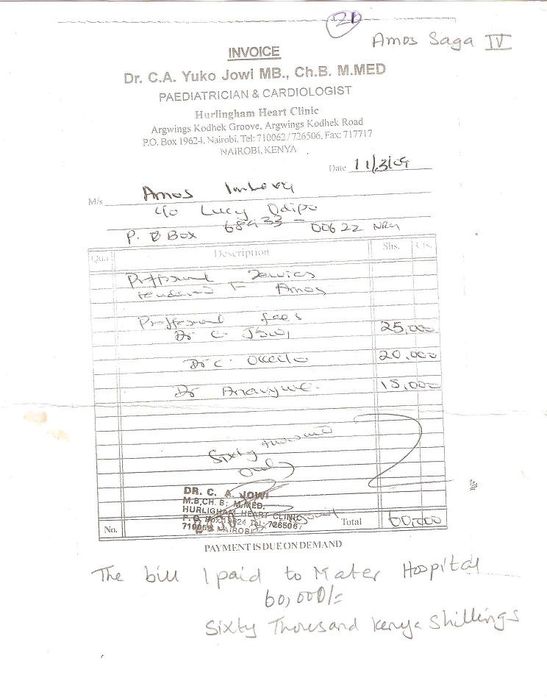 21
Amos Saga IV
INVOICE
Dr. C.A. Yuko Jowi MB., Ch.B. M.MED
PAEDIATRICIAN & CARDIOLOGIST
Hurlingham Heart Clinic
Argwings Kodhek Groove, Argwings Kodhek Road
P.O. Box 19624, Nairobi, Tel: 710062 / 726506, Fax: 717717
NAIROBI, KENYA
Date 11/3/09
M/s Amos
c/o Lucy Odipo
P. O Box 68933 - 00622 NRB
Qua Description Shs. Cts.
Amos
fees
Dr C Jowi 25,000
Dr C. Okello 20,000
Dr 15,000
Sixty thousand
only
DR. C. A. JOWI
M.B,CH. B; M.MED,
HURLIGHAM HEART CLINIC
P. O. Box 19624 Tel: 726506/
710062 NAIROBI
No. Total 60,000
PAYMENT IS DUE ON DEMAND
The bill I paid to Mater Hospital
60,000/=
Sixty Thousand Kenya Shillings